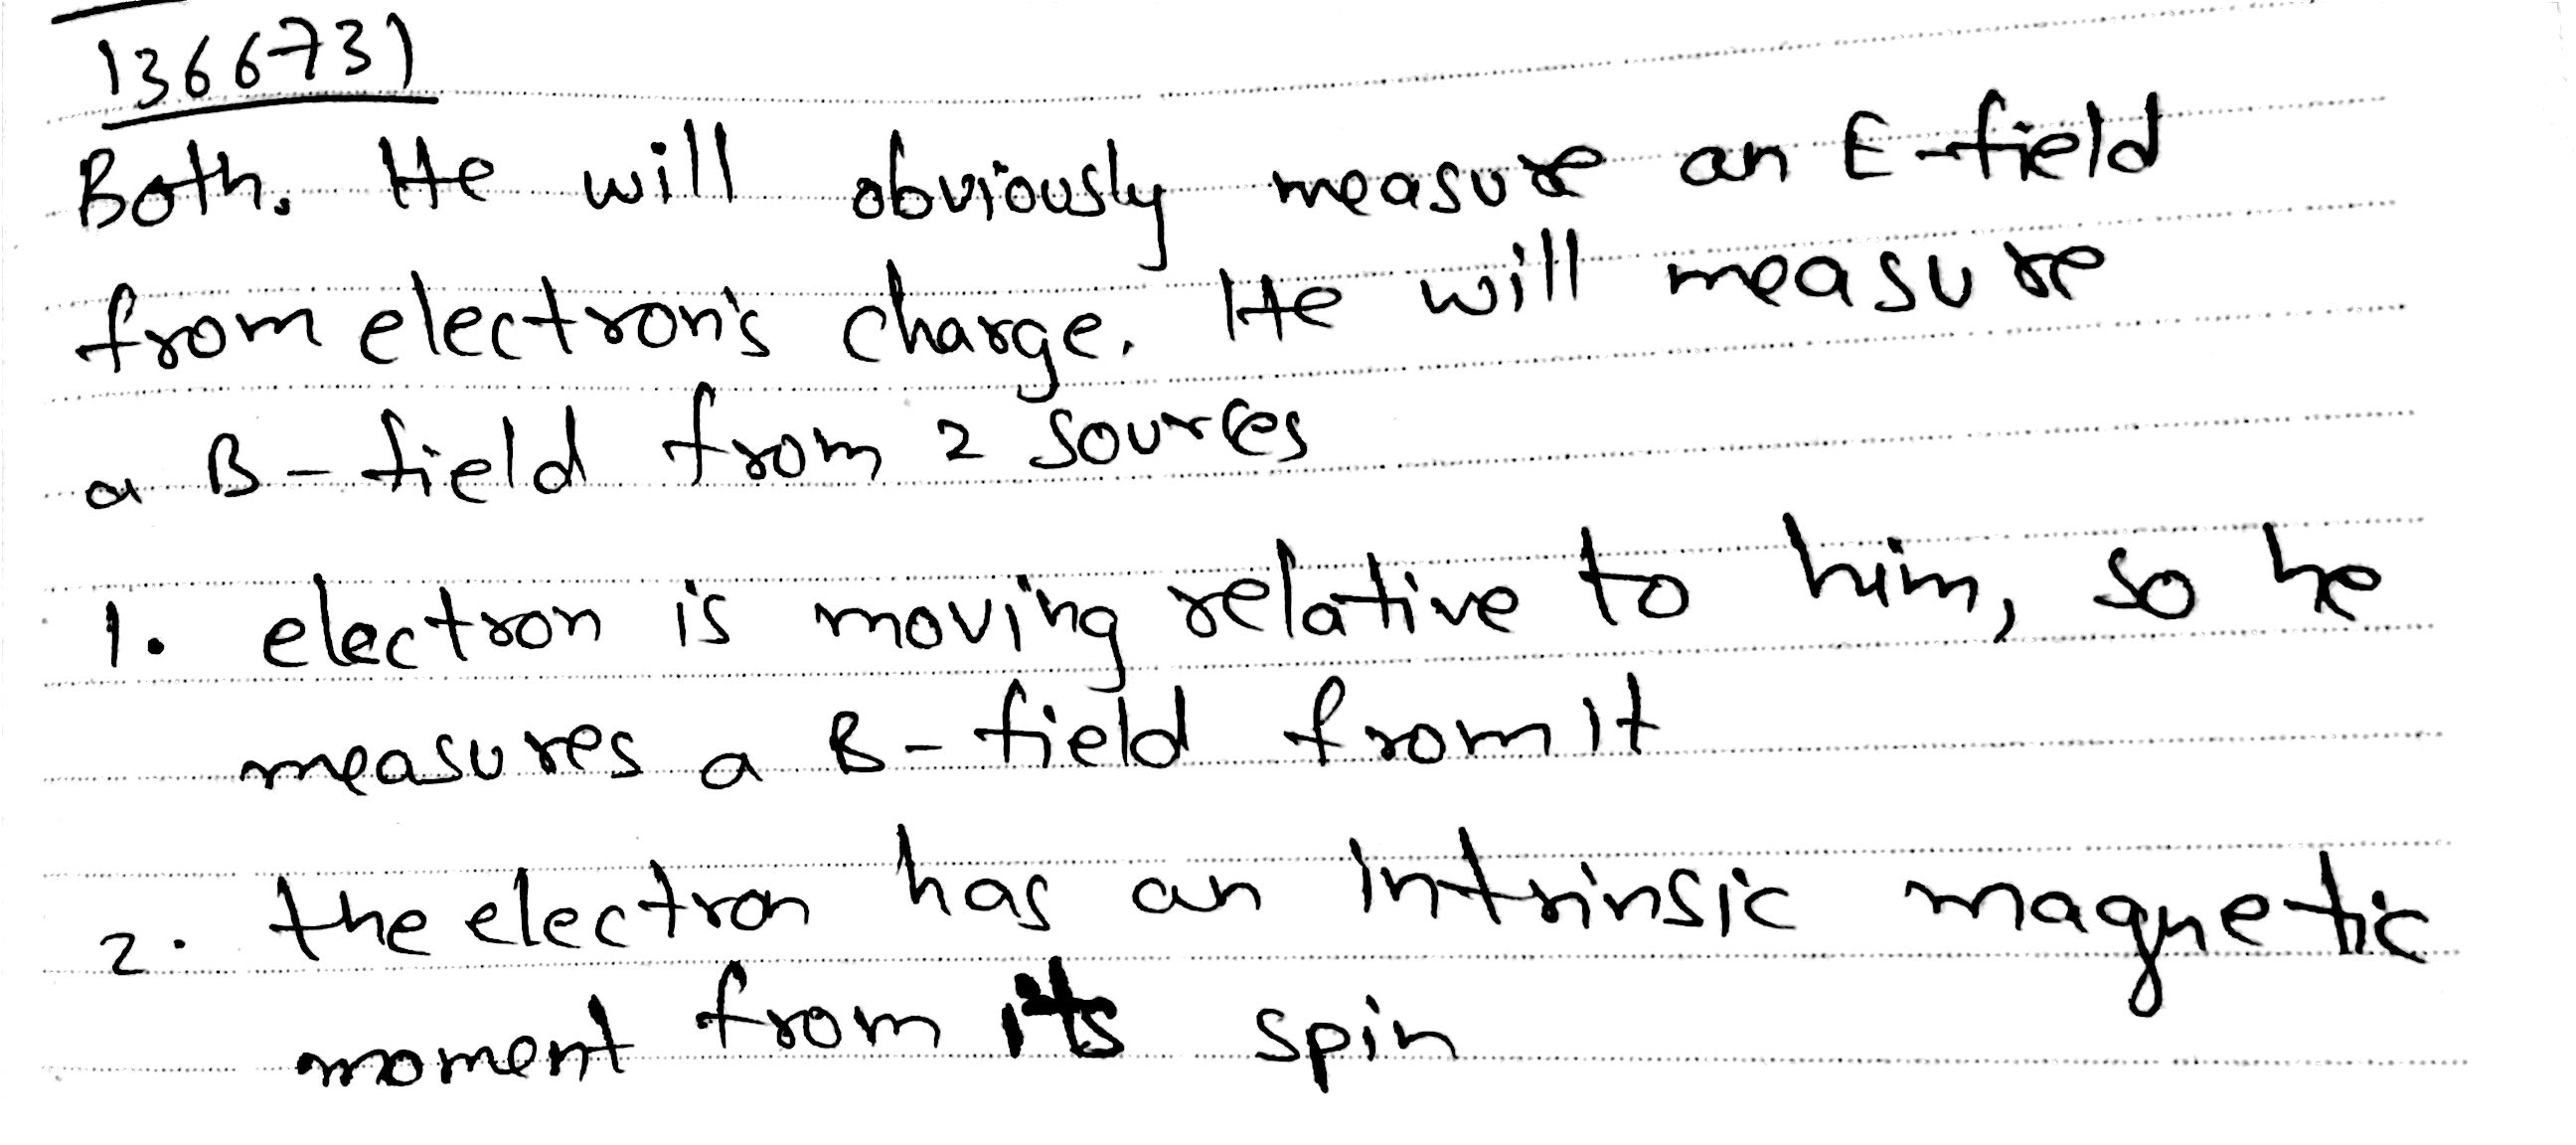 136673)
Both. He will obviously measure an E-field
from electron's charge. He will measure
a B-field from 2 sources
1. electron is moving relative to him, so he
measures a B-field from it
2. the electron has an intrinsic magnetic
moment from its spin